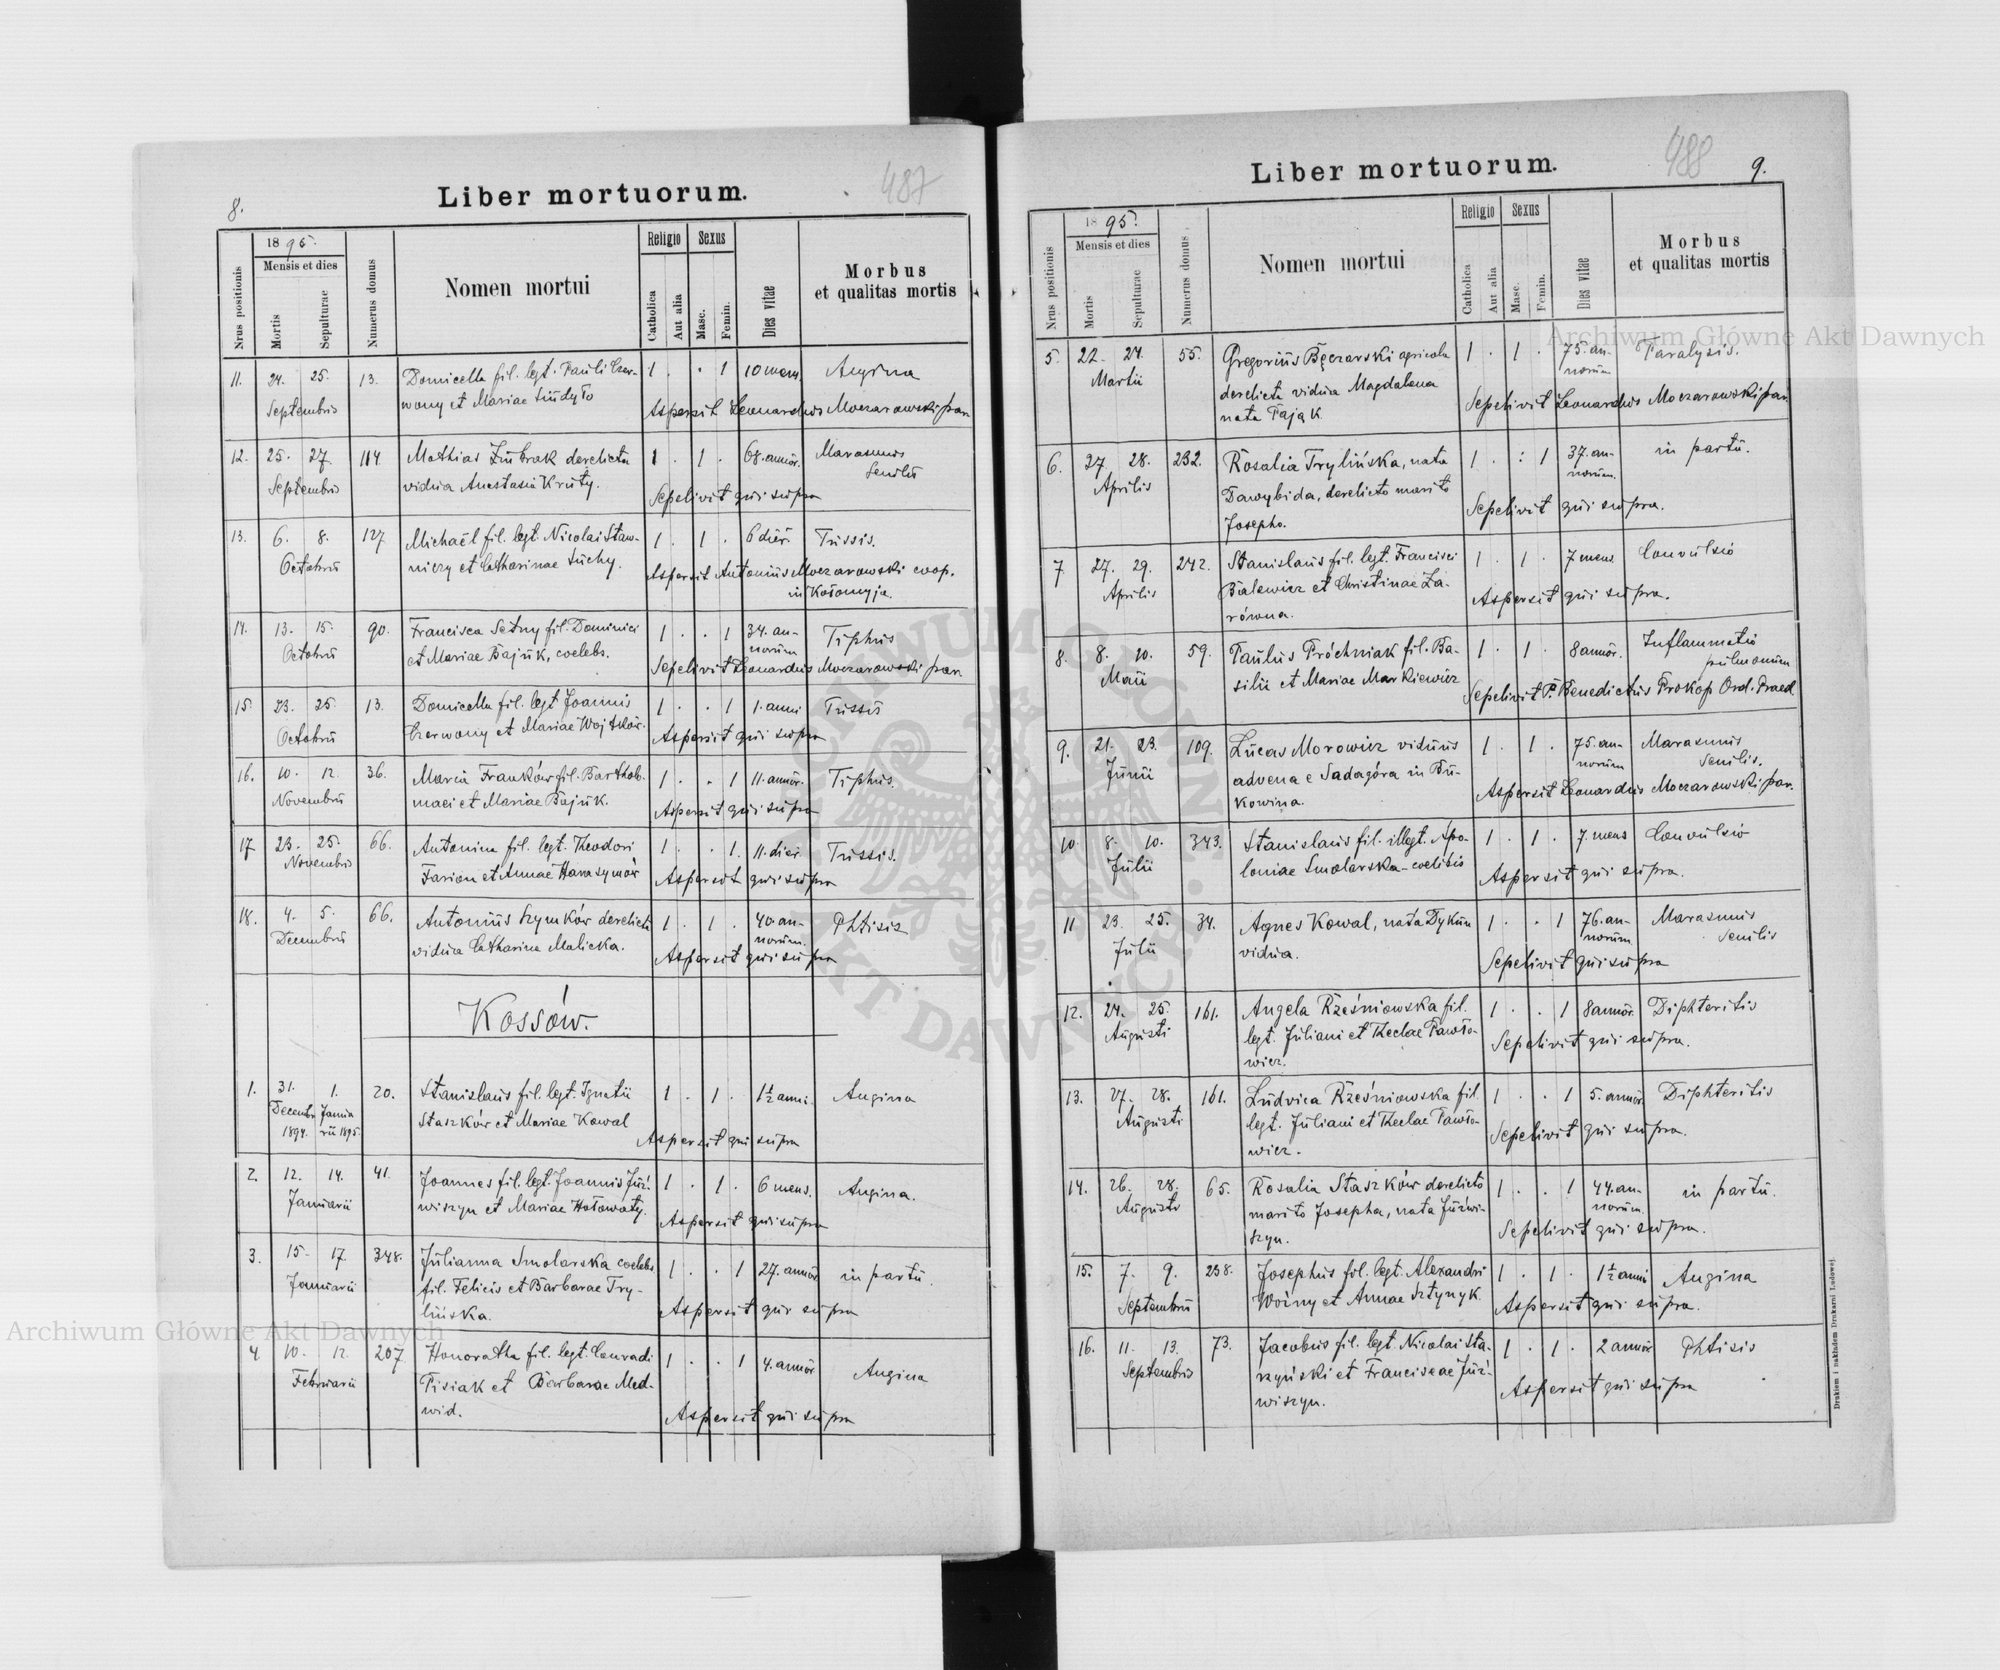 487
8.
Liber mortuorum.
Nrus positionis
1895.
Mensis et dies
Mortis
Sepulturae
Numerus domus
Nomen mortui
Religio
Catholica
Aut alia
Sexus
Masc.
Femin.
Dies vitae
Morbus
et qualitas mortis
11. 24. 25. 13. Domicella fil. legt. Pauli Czer- 1 . . 1 10 mens. Angina
Septembris wony et Mariae Aspersit Leonardus Moczarowski par.
12. 25. 27. 114. Mathias Zubrak derelicta 1 . 1 . 68. annor. Marasmus
Septembris vidua Anastasia Kruty. Sepelivit qui supra senilis
13. 6. 8. 127 Michaël fil. legt. Nicolai Staw- 1 . 1 . 6 dier. Tussis.
Octobris niczy et Catharinae Suchy. Aspersit Antonius Moczarowski coop.
in Kołomyja.
14. 13. 15. 90. Francisca Setny fil. Dominici 1 . . 1 34. an- Tiphus
Octobris et Mariae Bajuk, coelebs. norum
Sepelivit Leonardus Moczarowski par.
15. 23. 25. 13. Domicella fil. legt Joannis 1 . . 1 1. anni Tussis
Octobris Czerwony et Mariae Wojtków. Aspersit qui supra
16. 10. 12. 36. Maria Franków fil. Bartholo- 1 . . 1 11. annor. Tiphus.
Novembris maei et Mariae Bajuk. Aspersit qui supra
17 23. 25. 66. Antonina fil. legt. Theodori 1 . . 1. 11. dier. Tussis.
Novembris Farion et Annae Harasymów Aspersit qui supra
18. 4. 5. 66. Antonius Szymków derelicta 1 . 1 . 40. an- Phtisis
Decembris vidua Catharina Malicka. norum.
Aspersit qui supra
Kossów.
1. 31. 1. 20. Stanislaus fil. legt. Ignatii 1 . 1 . 1½ anni. Angina
Decembr. Janua Staszków et Mariae Kowal
1894. rii 1895. Aspersit qui supra
2. 12. 14. 41. Joannes fil. legt. Joannis Júź- 1 . 1 . 6 mens. Angina.
Januarii wiszyn et Mariae Hołowaty. Aspersit qui supra
3. 15. 17. 348. Julianna Smolarska coelebs 1 . . 1 27. annor in partu.
Januarii fil. Felicis et Barbarae Try-
lińska. Aspersit qui supra
4 10. 12. 207 Honoratha fil. legt. Conradi 1 . . 1 4. annor Angina
Februarii Pisiak et Barbarae Med-
wid. Aspersit qui supra
488
9.
Liber mortuorum.
Nrus positionis
1895.
Mensis et dies
Mortis
Sepulturae
Numerus domus
Nomen mortui
Religio
Catholica
Aut alia
Sexus
Masc.
Femin.
Dies vitae
Morbus
et qualitas mortis
5. 22. 24. 55. Gregorius Bęczarski agricola 1 . 1 . 75. an- Paralysis.
Martii derelicta vidua Magdalena norum
nata Pająk Sepelivit Leonardus Moczarowski par.
6. 27. 28. 232. Rosalia Trylińska, nata 1 . : 1 37. an- in partu.
Aprilis Dawybida, derelicto marito norum.
Josepho. Sepelivit qui supra.
7 27. 29. 242. Stanislaus fil. legt. Francisci 1 . 1 . 7 mens. Convulsio
Aprilis Bialewicz et Christinae Za-
równa. Aspersit qui supra.
8. 8. 10. 59. Paulus Próchniak fil. Ba- 1 . 1 . 8 annor. Inflammatio
Maii silii et Mariae Markiewicz pulmonum
Sepelivit P. Benedictus Prokop Ord. Praed.
9. 21. 23. 109. Lucas Morowicz viduus 1 . 1 . 75. an- Marasmus
Junii advena e Sadagóra in Bu- norum senilis.
kowina. Aspersit Leonardus Moczarowski par.
10. 8. 10. 343. Stanislaus fil. illegt. Apo- 1 . 1 . 7 mens Convulsio
Julii loniae Smolarska - coelibis Aspersit qui supra.
11 23. 25. 34. Agnes Kowal, nata Dykun 1 . . 1 76. an- Marasmus
Julii vidua. norum senilis
Sepelivit qui supra
12. 24. 25. 161. Angela Rześniowska fil. 1 . . 1 8 annor. Diphteritis
Augusti legt. Juliani et Theclae Pawło-
wicz. Sepelivit qui supra.
13. 27. 28. 161. Ludvica Rześniowska fil. 1 . . 1 5. annor. Diphteritis
Augusti legt. Juliani et Theclae Pawło-
wicz. Sepelivit qui supra.
14. 26. 28. 65. Rosalia Staszków derelicto 1 . . 1 44. an- in partu.
Augusti marito Josepha, nata Júźwi- norum.
szyn. Sepelivit qui supra.
15. 7. 9. 238. Josephus fil. legt. Alexandri 1 . 1 . 1½ anni Angina
Septembris Woźny et Annae Sztynyk Aspersit qui supra.
16. 11. 13. 73. Jacobus fil. legt. Nicolai Sta- 1 . 1 . 2 annor Phtisis
Septembris rzyński et Franciscae Júź-
wiszyn. Aspersit qui supra
Drukiem i nakładem Drukarni Ludowej.
Archiwum Główne Akt Dawnych
Archiwum Główne Akt Dawnych
ARCHIWUM GŁÓWNE AKT DAWNYCH